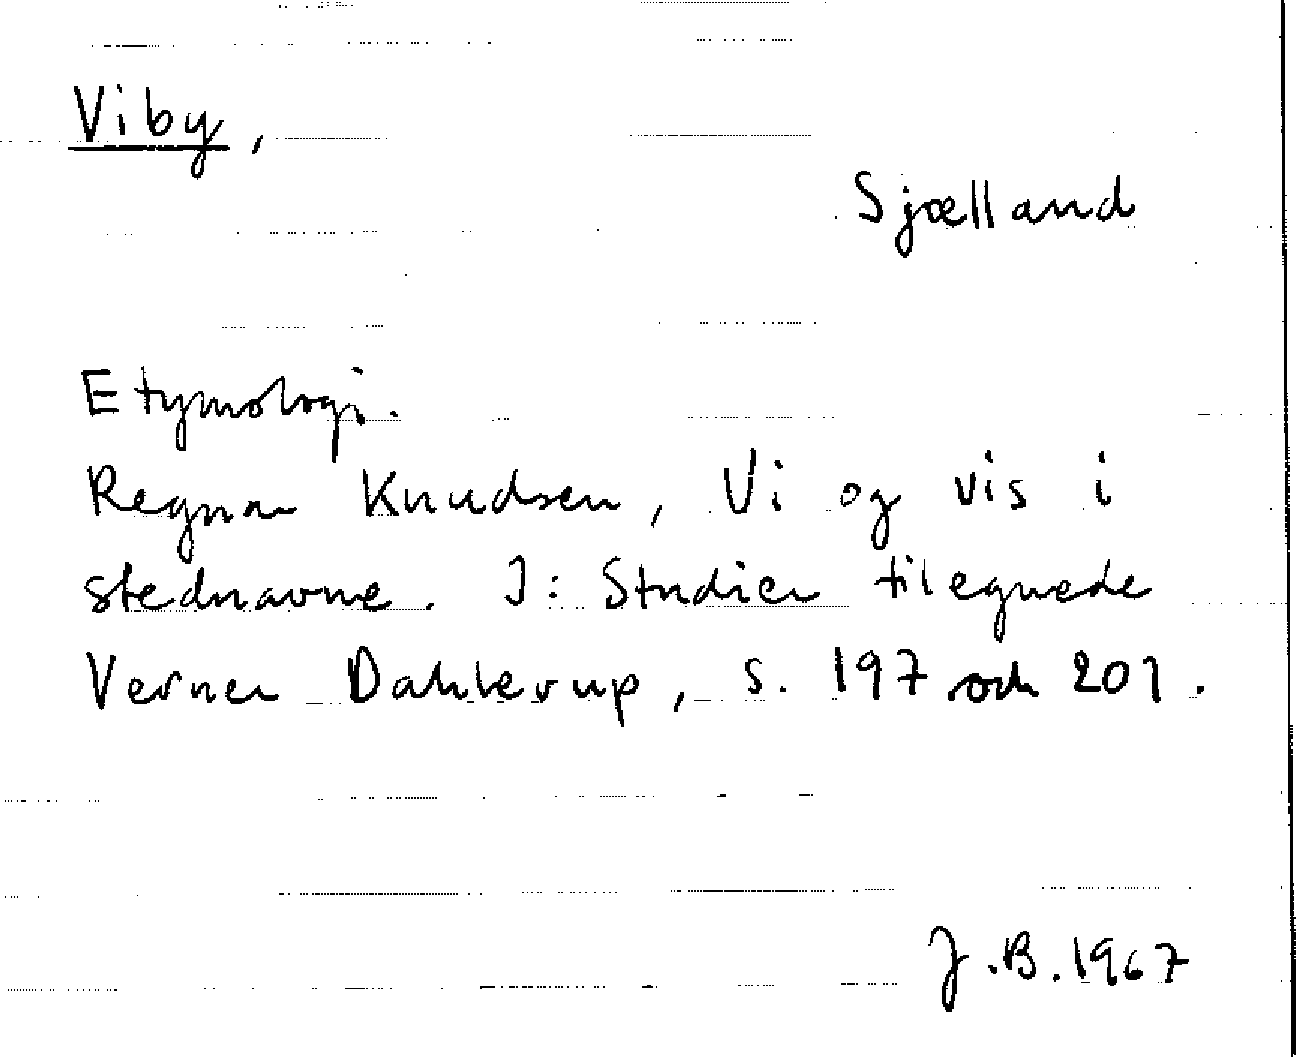 Viby,
Sjælland
Etymologi.
Regnar Knudsen, Vi og vis i
stednavne. I: Studier tilegnede
Verner Dahlerup, s. 197 och 201.
J.B. 1967